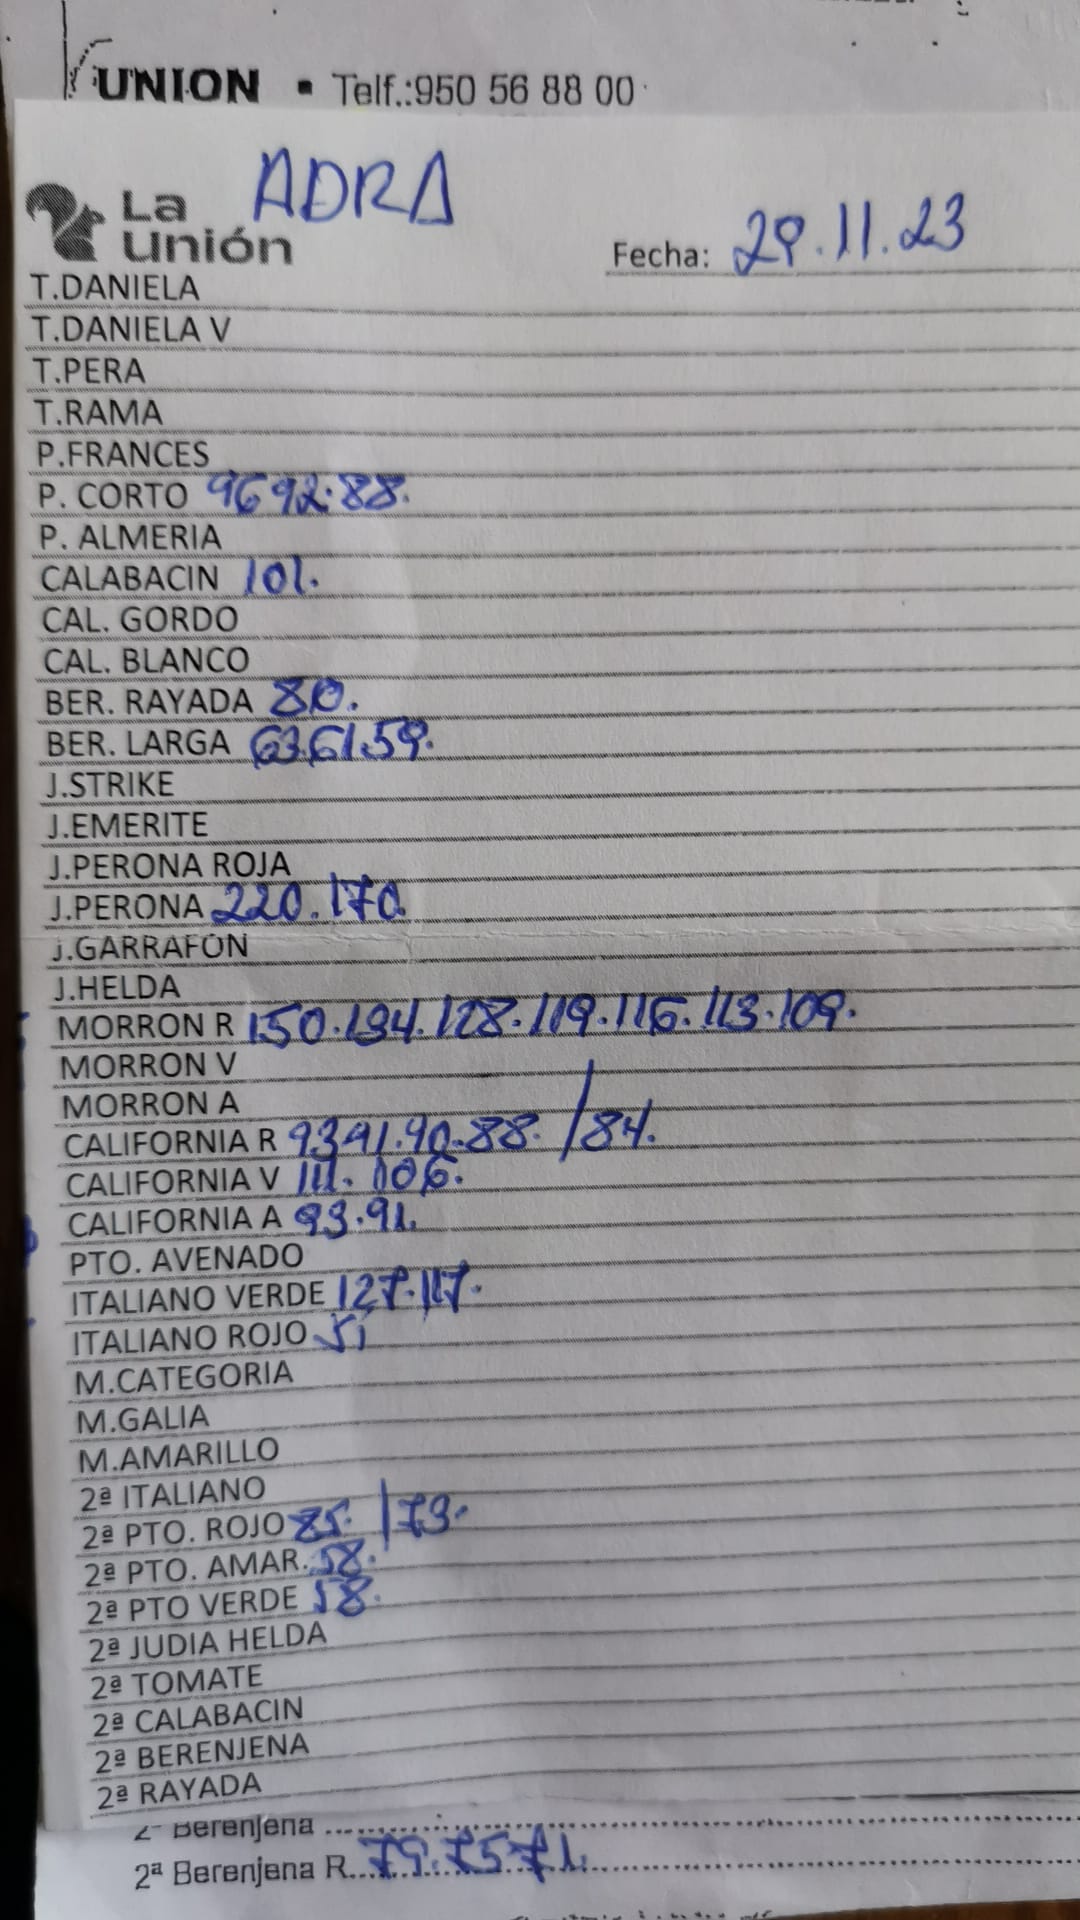 UNION ▪ Telf.:950 56 88 00
ADRA
La Unión
Fecha: 29.11.23
T.DANIELA
T.DANIELA V
T.PERA
T.RAMA
P.FRANCES
P. CORTO 96 92.88.
P. ALMERIA
CALABACIN 101.
CAL. GORDO
CAL. BLANCO
BER. RAYADA 80.
BER. LARGA 63.61.59.
J.STRIKE
J.EMERITE
J.PERONA ROJA
J.PERONA 220.170.
J.GARRAFON
J.HELDA
MORRON R 150.134.128.119.116.113.109.
MORRON V
MORRON A
CALIFORNIA R 93.91.90.88. /84.
CALIFORNIA V 111. 106.
CALIFORNIA A 93.91.
PTO. AVENADO
ITALIANO VERDE 127.117.
ITALIANO ROJO Si
M.CATEGORIA
M.GALIA
M.AMARILLO
2ª ITALIANO
2ª PTO. ROJO 85. /73.
2ª PTO. AMAR. 58.
2ª PTO VERDE 58.
2ª JUDIA HELDA
2ª TOMATE
2ª CALABACIN
2ª BERENJENA
2ª RAYADA
2ª Berenjena
2ª Berenjena R. 79.75.71.